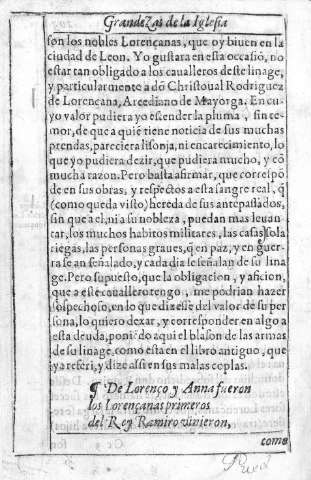 Grandezas de la Iglesia
son los nobles Lorençanas, que oy biuen en la
ciudad de Leon. Yo gustara en esta occasiõ, no
estar tan obligado a los caualleros deste linage,
y particularmente a dõ Christoual Rodriguez
de Lorençana, Arcediano de Mayorga. En cu-
yo valor pudiera yo estender la pluma, sin te-
mor, de que a quiẽ tiene noticia de sus muchas
prendas, pareciera lisonja, ni encarecimiento, lo
que yo pudiera dezir, que pudiera mucho, y cõ
mucha razon. Pero basta afirmar, que correspõ
de en sus obras, y respectos a esta sangre real, q̃
(como queda visto) hereda de sus antepassados,
sin que a el, ni a su nobleza, puedan mas leuan
tar, los muchos habitos militares, las casas sola
riegas, las personas graues, q̃ en paz, y en guer-
ra se an señalado, y cada dia se señalan de su lina
ge. Pero supuesto, que la obligacion, y aficion,
que a este cauallero tengo, me podrian hazer
sospechoso, en lo que dixesse del valor de su per
sona, lo quiero dexar, y corresponder en algo a
esta deuda, poniẽdo aqui el blason de las armas
de su linage, como esta en el libro antiguo, que
ya referi, y dize assi en sus malas coplas.
¶ De Lorenço y Anna fueron
los Lorençanas primeros
del Rey Ramiro vinieron,
como